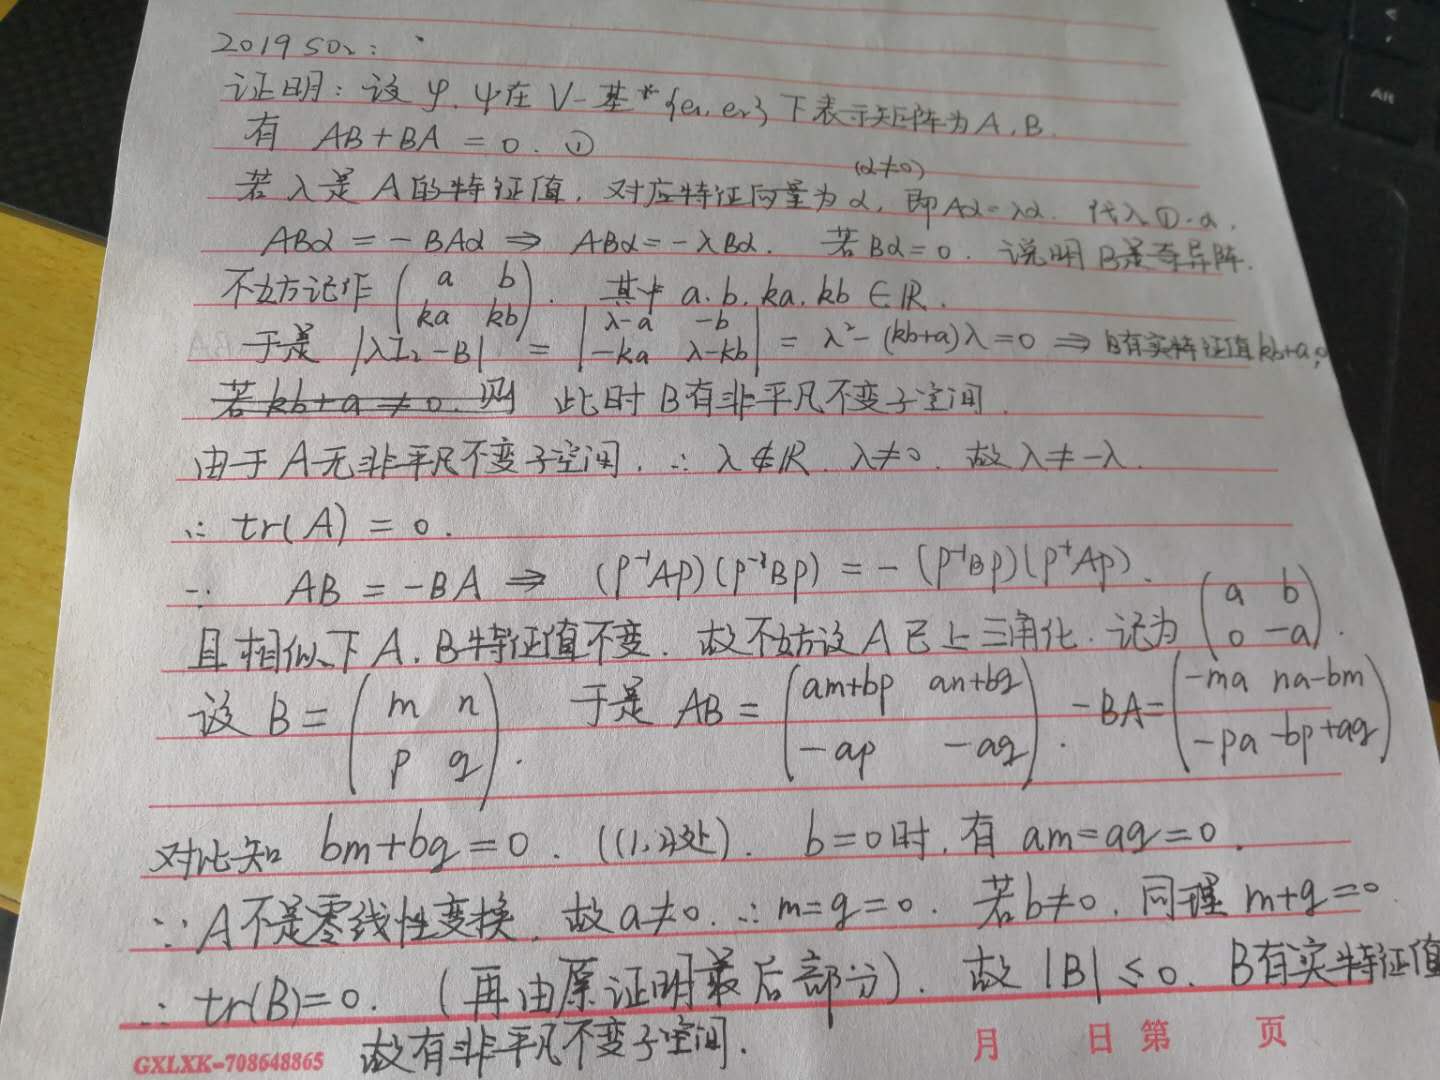 2019 S02:
证明: 设 φ. ψ在 V-基*{e₁, e₂} 下表示矩阵为 A, B.
有 AB+BA = 0. ①
若 λ是 A 的特征值, 对应特征向量为 α, (α≠0) 即 Aα=λα. 代入①·α,
ABα = -BAα ⇒ ABα = -λBα. 若 Bα=0. 说明 B是奇异阵.
不妨记作 (a b; ka kb). 其中 a. b. ka. kb ∈ℝ.
于是 |λI₂-B| = |λ-a -b; -ka λ-kb| = λ²-(kb+a)λ=0 ⇒ B有实特征值kb+a,0
若 kb+a ≠ 0. 则 此时 B有非平凡不变子空间.
由于 A无非平凡不变子空间. ∴ λ∉ℝ. λ≠0. 故 λ≠-λ.
∴ tr(A) = 0.
∵ AB = -BA ⇒ (P⁻¹AP)(P⁻¹BP) = -(P⁻¹BP)(P⁻¹AP).
且相似下 A. B特征值不变. 故不妨设 A 已上三角化. 记为 (a b; 0 -a).
设 B = (m n; p q). 于是 AB = (am+bp an+bq; -ap -aq). -BA = (-ma na-bm; -pa -bp+aq)
对比知 bm+bq=0. ((1,2)处). b=0时, 有 am=aq=0.
∵ A不是零线性变换. 故 a≠0. ∴ m=q=0. 若 b≠0, 同理 m+q=0
∴ tr(B)=0. (再由原证明最后部分). 故 |B| ≤ 0. B有实特征值
故有非平凡不变子空间.
GXLXK-708648865 月 日 第 页